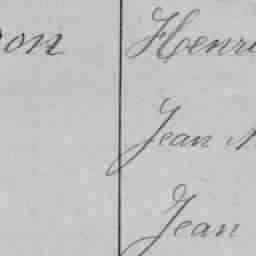 on Henri
Jean
Jean